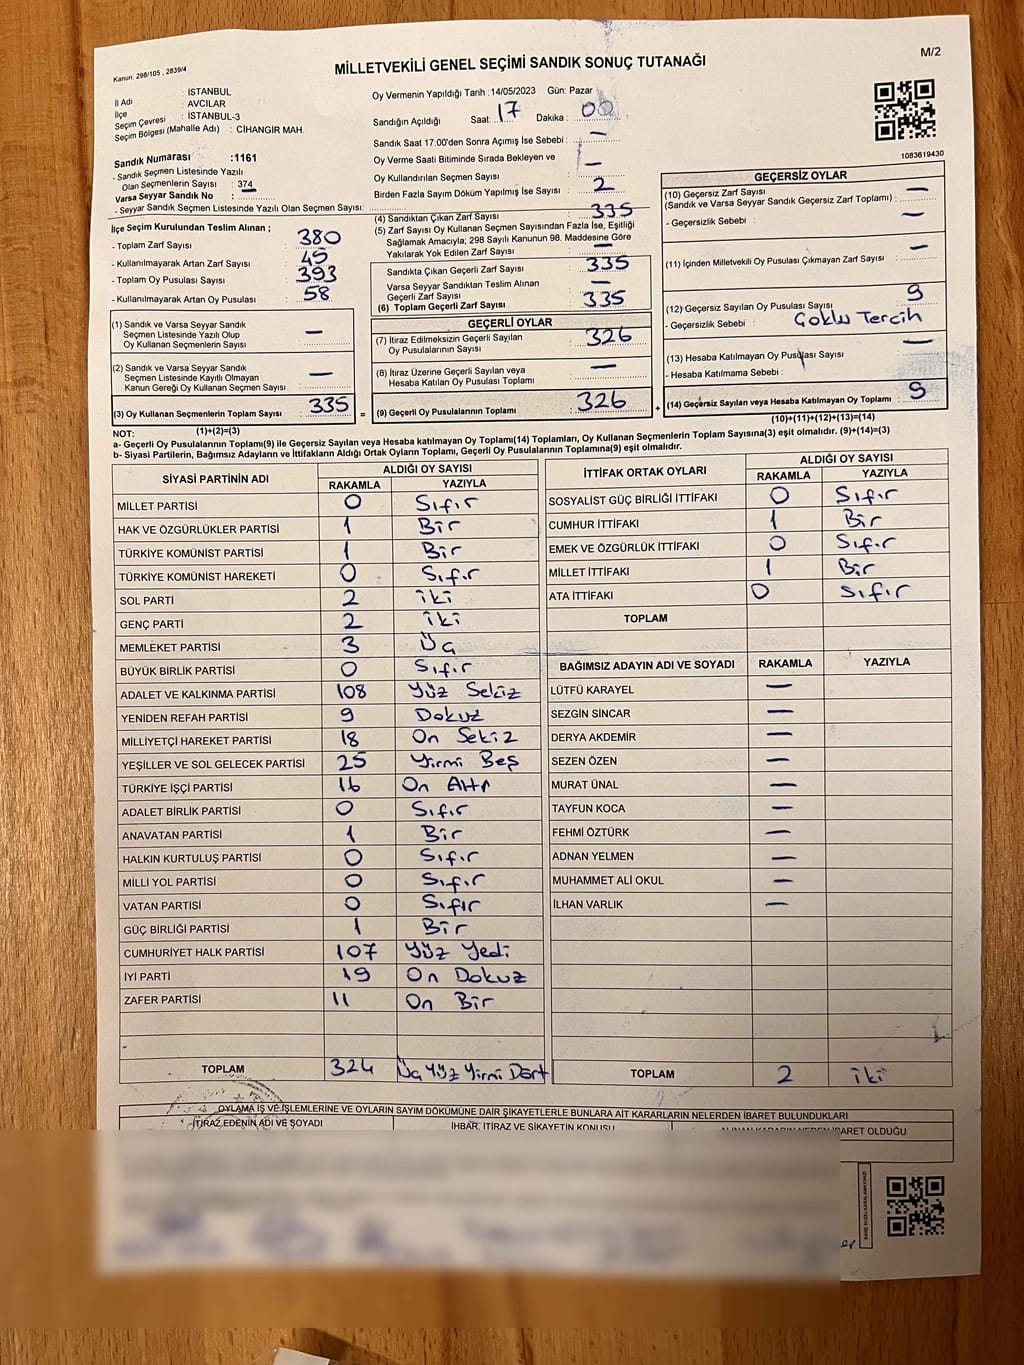 M/2
Kanun: 298/105 , 2839/4
MİLLETVEKİLİ GENEL SEÇİMİ SANDIK SONUÇ TUTANAĞI
İl Adı : İSTANBUL
İlçe : AVCILAR
Seçim Çevresi : İSTANBUL-3
Seçim Bölgesi (Mahalle Adı) : CİHANGİR MAH.
Sandık Numarası :1161
- Sandık Seçmen Listesinde Yazılı
Olan Seçmenlerin Sayısı : 374
Varsa Seyyar Sandık No :
- Seyyar Sandık Seçmen Listesinde Yazılı Olan Seçmen Sayısı:
Oy Vermenin Yapıldığı Tarih :14/05/2023 Gün: Pazar
Sandığın Açıldığı Saat: 17 Dakika : 00
Sandık Saat 17.00'den Sonra Açımış İse Sebebi : —
Oy Verme Saati Bitiminde Sırada Bekleyen ve
Oy Kullandırılan Seçmen Sayısı : —
Birden Fazla Sayım Döküm Yapılmış İse Sayısı : 2
1083619430
İlçe Seçim Kurulundan Teslim Alınan ;
- Toplam Zarf Sayısı : 380
- Kullanılmayarak Artan Zarf Sayısı : 45
- Toplam Oy Pusulası Sayısı : 393
- Kullanılmayarak Artan Oy Pusulası : 58
(1) Sandık ve Varsa Seyyar Sandık
Seçmen Listesinde Yazılı Olup
Oy Kullanan Seçmenlerin Sayısı : —
(2) Sandık ve Varsa Seyyar Sandık
Seçmen Listesinde Kayıtlı Olmayan
Kanun Gereği Oy Kullanan Seçmen Sayısı : —
(3) Oy Kullanan Seçmenlerin Toplam Sayısı : 335
(1)+(2)=(3)
(4) Sandıktan Çıkan Zarf Sayısı : 335
(5) Zarf Sayısı Oy Kullanan Seçmen Sayısından Fazla İse, Eşitliği
Sağlamak Amacıyla; 298 Sayılı Kanunun 98. Maddesine Göre
Yakılarak Yok Edilen Zarf Sayısı : —
Sandıkta Çıkan Geçerli Zarf Sayısı : 335
Varsa Seyyar Sandıktan Teslim Alınan
Geçerli Zarf Sayısı : —
(6) Toplam Geçerli Zarf Sayısı : 335
GEÇERLİ OYLAR
(7) İtiraz Edilmeksizin Geçerli Sayılan
Oy Pusulalarının Sayısı : 326
(8) İtiraz Üzerine Geçerli Sayılan veya
Hesaba Katılan Oy Pusulası Toplamı : —
= (9) Geçerli Oy Pusulalarının Toplamı : 326
GEÇERSİZ OYLAR
(10) Geçersiz Zarf Sayısı
(Sandık ve Varsa Seyyar Sandık Geçersiz Zarf Toplamı) : —
- Geçersizlik Sebebi : —
(11) İçinden Milletvekili Oy Pusulası Çıkmayan Zarf Sayısı : —
(12) Geçersiz Sayılan Oy Pusulası Sayısı : 9
- Geçersizlik Sebebi : Çoklu Tercih
(13) Hesaba Katılmayan Oy Pusulası Sayısı : —
- Hesaba Katılmama Sebebi :
+ (14) Geçersiz Sayılan veya Hesaba Katılmayan Oy Toplamı : 9
(10)+(11)+(12)+(13)=(14)
NOT:
a- Geçerli Oy Pusulalarının Toplamı(9) ile Geçersiz Sayılan veya Hesaba katılmayan Oy Toplamı(14) Toplamları, Oy Kullanan Seçmenlerin Toplam Sayısına(3) eşit olmalıdır. (9)+(14)=(3)
b- Siyasi Partilerin, Bağımsız Adayların ve İttifakların Aldığı Ortak Oyların Toplamı, Geçerli Oy Pusulalarının Toplamına(9) eşit olmalıdır.
SİYASİ PARTİNİN ADI ALDIĞI OY SAYISI
RAKAMLA YAZIYLA
MİLLET PARTİSİ 0 Sıfır
HAK VE ÖZGÜRLÜKLER PARTİSİ 1 Bir
TÜRKİYE KOMÜNİST PARTİSİ 1 Bir
TÜRKİYE KOMÜNİST HAREKETİ 0 Sıfır
SOL PARTİ 2 iki
GENÇ PARTİ 2 iki
MEMLEKET PARTİSİ 3 Üç
BÜYÜK BİRLİK PARTİSİ 0 Sıfır
ADALET VE KALKINMA PARTİSİ 108 Yüz Sekiz
YENİDEN REFAH PARTİSİ 9 Dokuz
MİLLİYETÇİ HAREKET PARTİSİ 18 On Sekiz
YEŞİLLER VE SOL GELECEK PARTİSİ 25 Yirmi Beş
TÜRKİYE İŞÇİ PARTİSİ 16 On Altı
ADALET BİRLİK PARTİSİ 0 Sıfır
ANAVATAN PARTİSİ 1 Bir
HALKIN KURTULUŞ PARTİSİ 0 Sıfır
MİLLİ YOL PARTİSİ 0 Sıfır
VATAN PARTİSİ 0 Sıfır
GÜÇ BİRLİĞİ PARTİSİ 1 Bir
CUMHURİYET HALK PARTİSİ 107 Yüz Yedi
İYİ PARTİ 19 On Dokuz
ZAFER PARTİSİ 11 On Bir
TOPLAM 324 Üç Yüz Yirmi Dört
İTTİFAK ORTAK OYLARI ALDIĞI OY SAYISI
RAKAMLA YAZIYLA
SOSYALİST GÜÇ BİRLİĞİ İTTİFAKI 0 Sıfır
CUMHUR İTTİFAKI 1 Bir
EMEK VE ÖZGÜRLÜK İTTİFAKI 0 Sıfır
MİLLET İTTİFAKI 1 Bir
ATA İTTİFAKI 0 Sıfır
TOPLAM
BAĞIMSIZ ADAYIN ADI VE SOYADI RAKAMLA YAZIYLA
LÜTFÜ KARAYEL —
SEZGİN SİNCAR —
DERYA AKDEMİR —
SEZEN ÖZEN —
MURAT ÜNAL —
TAYFUN KOCA —
FEHMİ ÖZTÜRK —
ADNAN YELMEN —
MUHAMMET ALİ OKUL —
İLHAN VARLIK —
TOPLAM 2 iki
OYLAMA İŞ VE İŞLEMLERİNE VE OYLARIN SAYIM DÖKÜMÜNE DAİR ŞİKAYETLERLE BUNLARA AİT KARARLARIN NELERDEN İBARET BULUNDUKLARI
İTİRAZ EDENİN ADI VE SOYADI İHBAR, İTİRAZ VE ŞİKAYETİN KONUSU ALINAN KARARIN NEDEN İBARET OLDUĞU